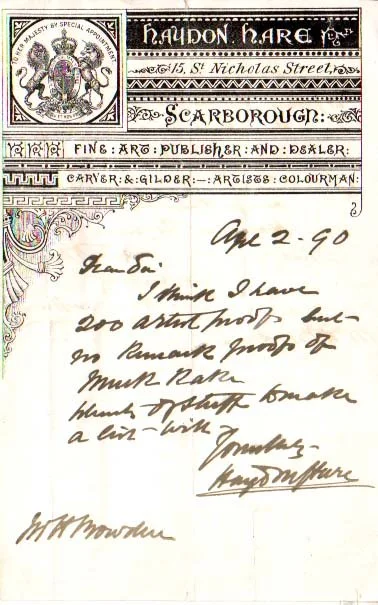 TO HER MAJESTY BY SPECIAL APPOINTMENT
HAYDON HARE
15, St. Nicholas Street,
SCARBOROUGH:
FINE: ART: PUBLISHER: AND: DEALER:
CARVER: & GILDER:—: ARTISTS COLOURMAN:
Apl 2 - 90
Dear Sir
I think I have
200 artist proofs but
no Remark proofs of
Muck Rake
plenty of stuff to make
a list with
Yours truly
Haydon Hare